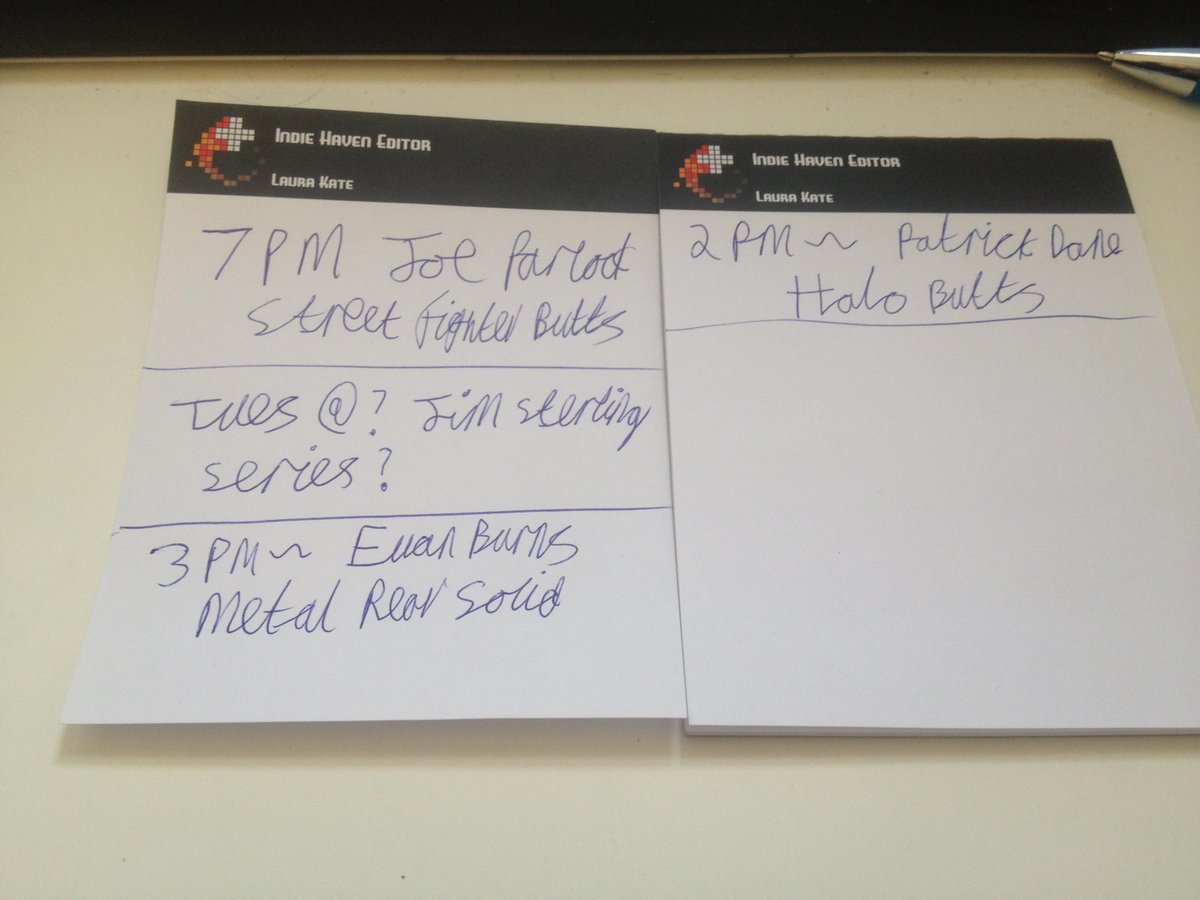 Indie Haven Editor
Laura Kate
7 PM Joe Parlock
Street Fighter Butts
Tues @? Jim Sterling
series?
3 PM ~ Euan Burns
Metal Rear Solid
Indie Haven Editor
Laura Kate
2 PM ~ Patrick Dane
Halo Butts